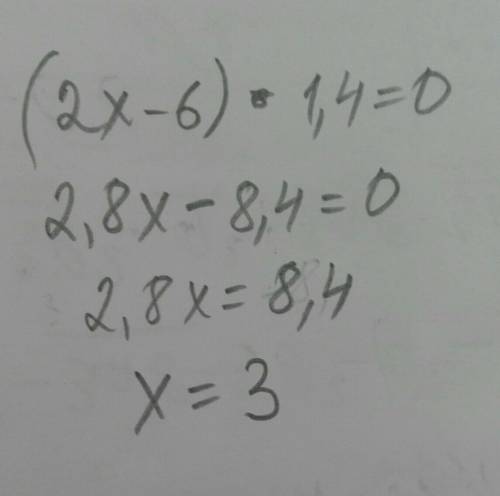 (2x-6) · 1,4=0
2,8x-8,4=0
2,8x=8,4
x=3